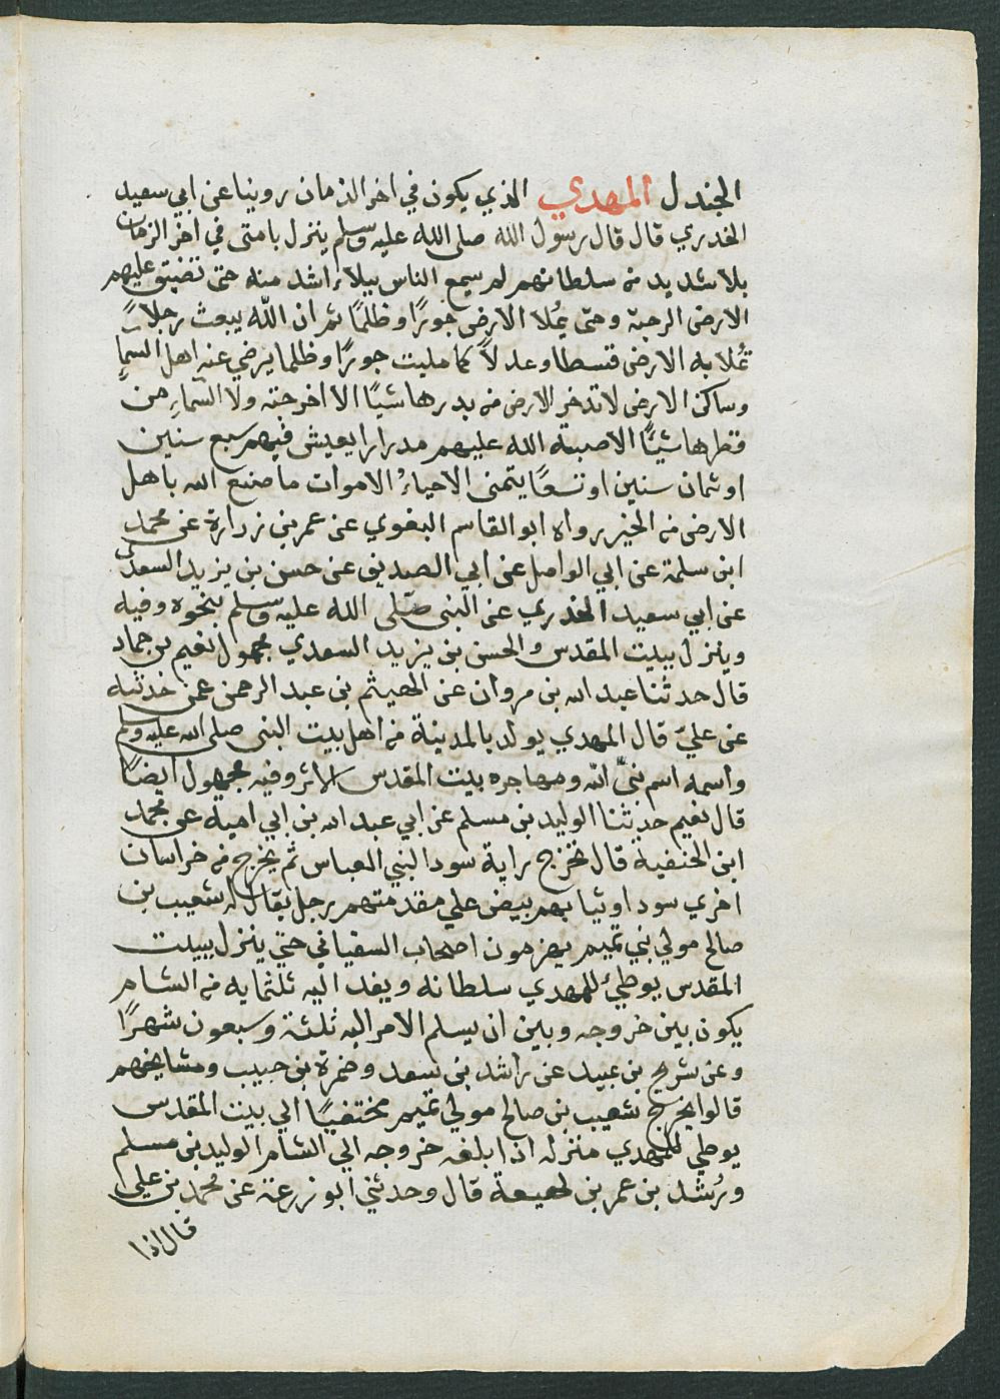 الجندل المهدي الذي يكون في اخر الزمان روينا عن ابي سعيد
الخدري قال قال رسول الله صلى الله عليه وسلم ينزل بامتى في اخر الزمان
بلا شديد من سلطانهم لم يسمع الناس ببلاء اشد منه حتى تضيق عليهم
الارض الرحبة وحتى يملا الارض جورًا وظلمًا ثم ان الله يبعث رجلاً
تملا به الارض قسطا وعدلاً كما مليت جورًا وظلما يرضي عنه اهل السماء
وساكن الارض لا تدخر الارض من بدرها شيًا الا اخرجته ولا السماء من
قطرها شيًا الا صبه الله عليهم مدرارا يعيش فيهم سبع سنين
او ثمان سنين او تسعًا يتمنى الاحياءُ الاموات ما صنع الله باهل
الارض من الخير رواه ابو القاسم البغوي عن عمر بن زرارة عن محمد
ابن سلمة عن ابي الواصل عن ابي الصديق عن حسن بن يزيد السعدى
عن ابي سعيد الخدري عن النبى صلى الله عليه وسلم بنحوه وفيه
وينزل ببيت المقدس والحسن بن يزيد السعدي مجهول نعيم بن حماد
قال حدثنا عبد الله بن مروان عن الهيثم بن عبد الرحمن عمن حدثه
عن علي قال المهدي يولد بالمدينة من اهل بيت النبى صلى الله عليه وسلم
واسمه اسم نبى الله ومهاجره بيت المقدس الاثر وفيه مجهول ايضًا
قال نعيم حدثنا الوليد بن مسلم عن ابي عبد الله بن ابي امية عن محمد
ابن الحنفية قال تخرج راية سودا لبني العباس ثم يخرج من خراسان
اخري سودا وثيابهم بيض علي مقدمتهم رجل يقال له شعيب بن
صالح مولي بني تميم يهزمون اصحاب السفياني حتي ينزل ببيت
المقدس يوطئ للمهدي سلطانه ويفد اليه ثلثمايه من الشام
يكون بين خروجه وبين ان يسلم الامر اليه ثلثة وسبعون شهرًا
وعن شريح بن عبيد عن راشد بن سعد وضمرة بن حبيب ومشايخهم
قالوا يخرج شعيب بن صالح مولي تميم مختفيًا الي بيت المقدس
يوطي للمهدي منزله اذا بلغه خروجه الي الشام الوليد بن مسلم
ورُشد بن عمر بن لهيعة قال وحدثني ابو زرعة عن محمد بن علي
قال اذا